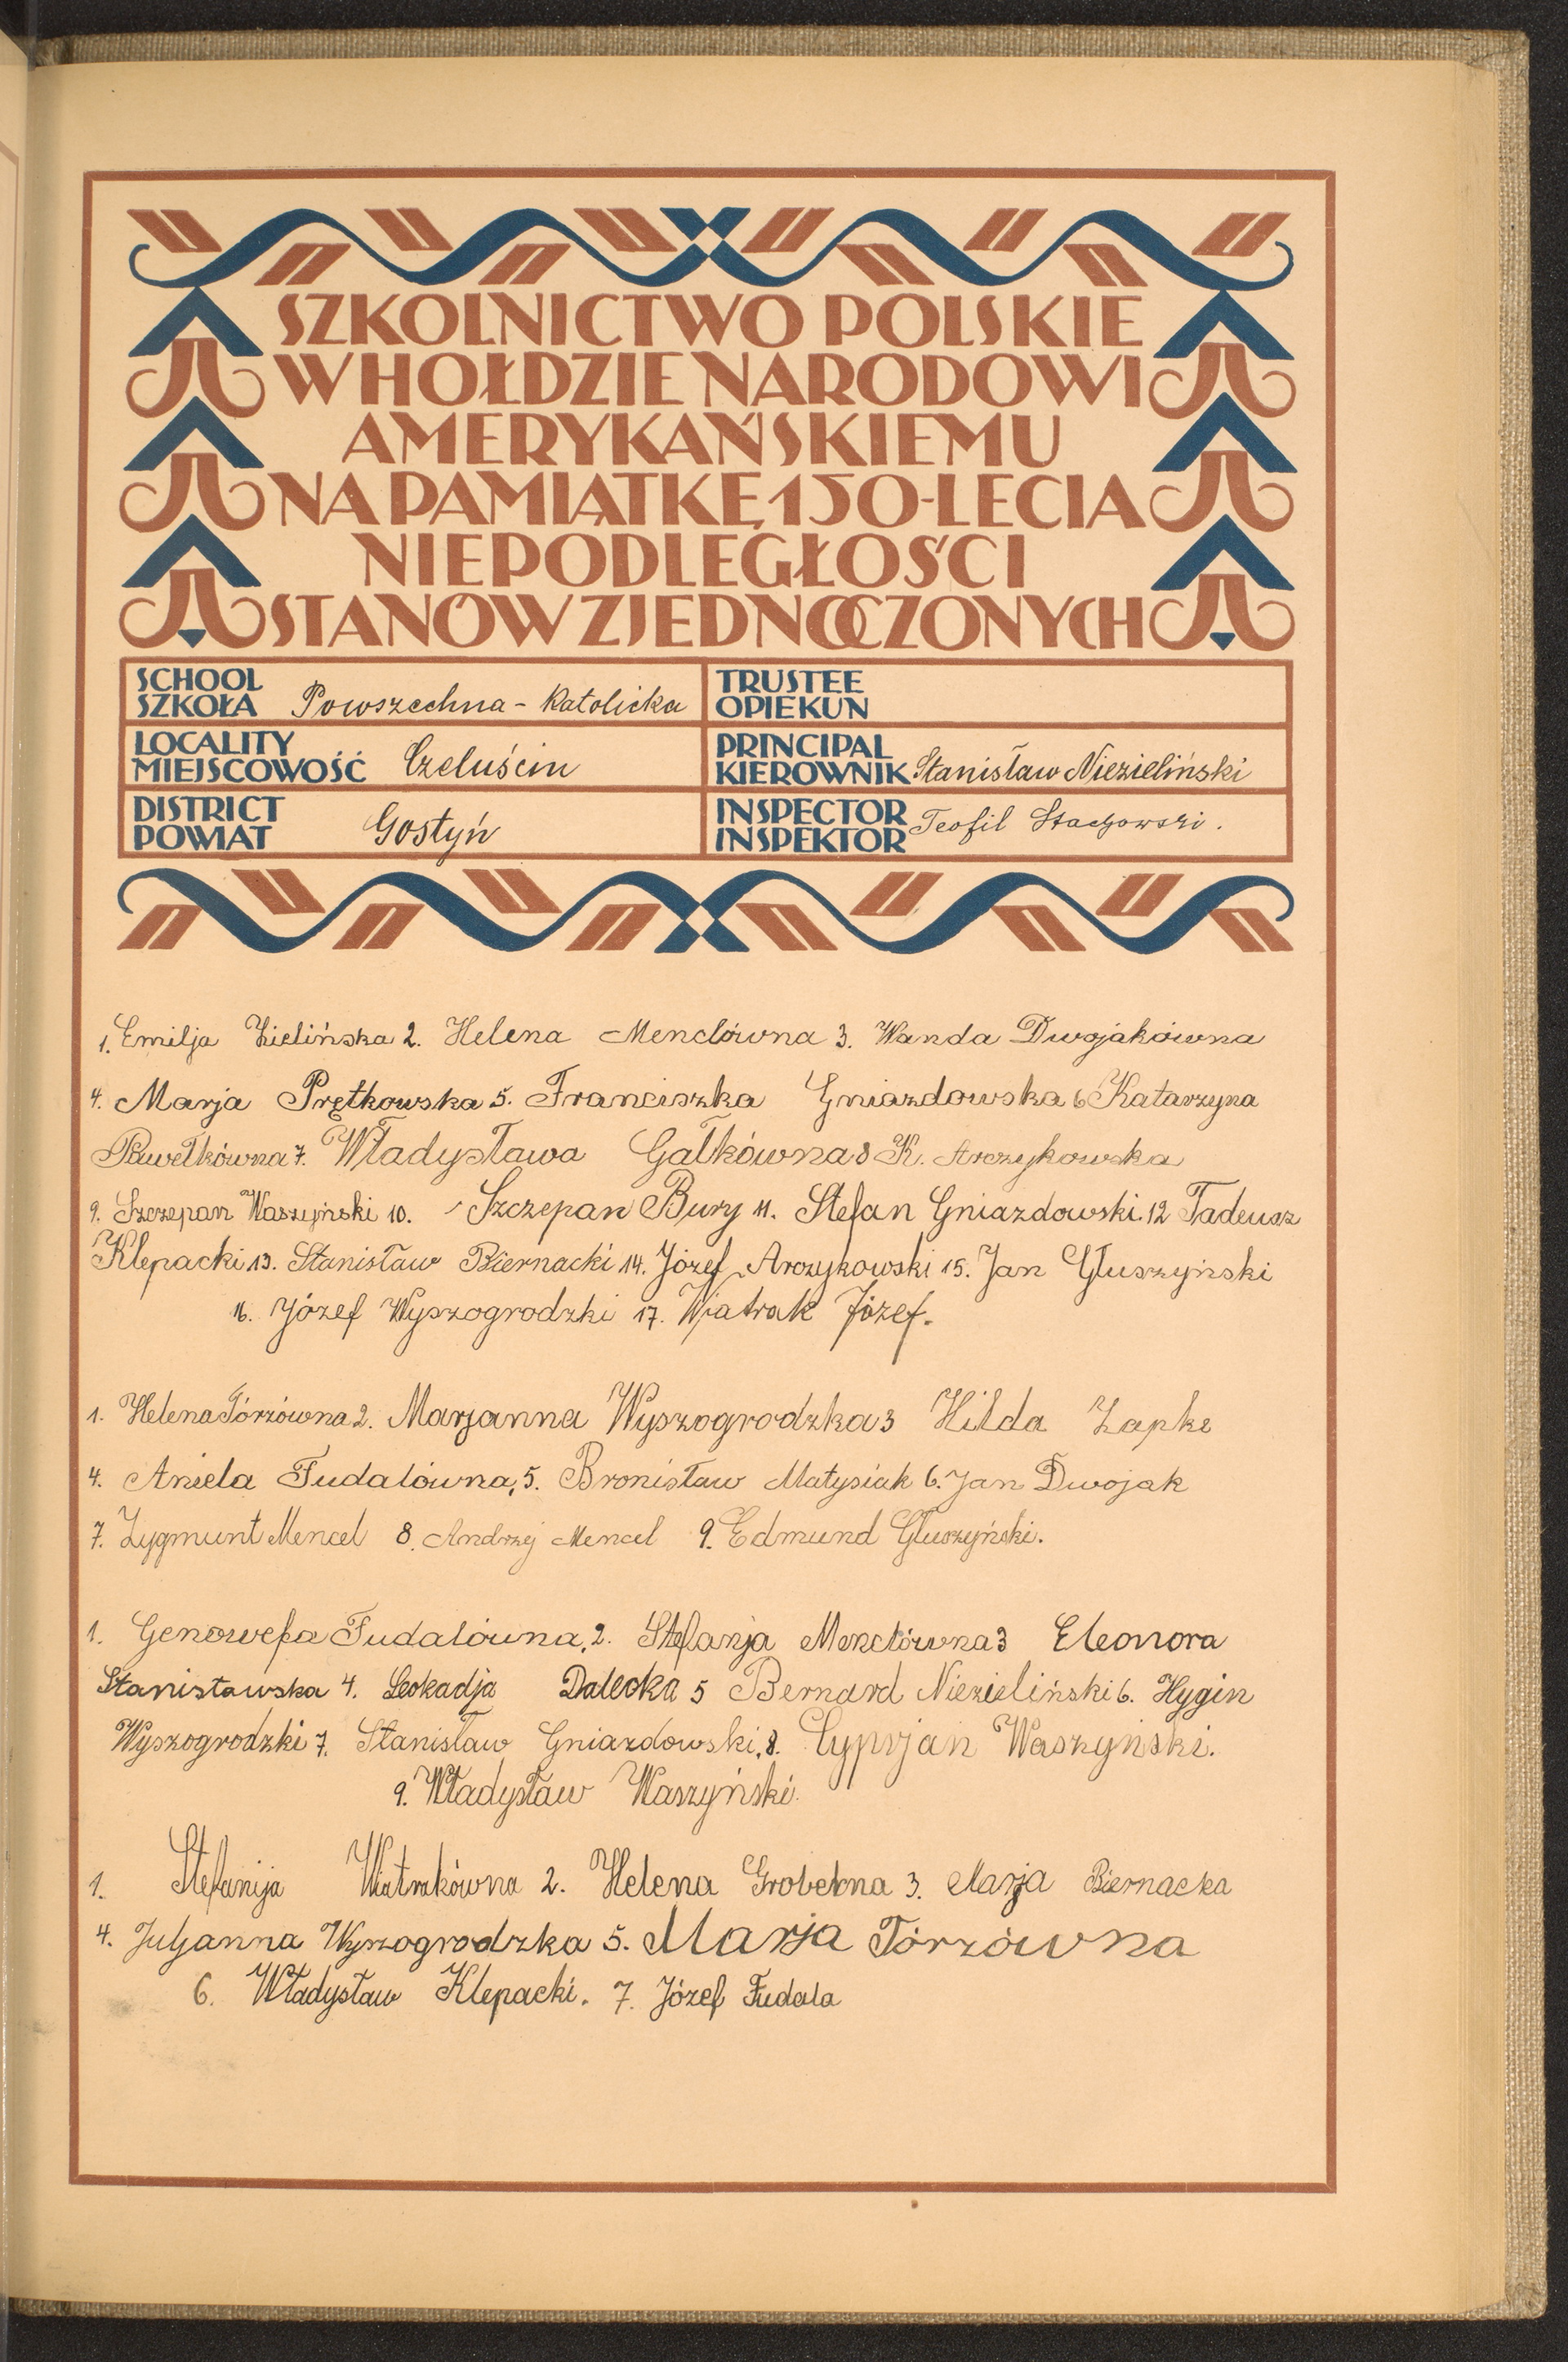 SZKOLNICTWO POLSKIE
W HOŁDZIE NARODOWI
AMERYKAŃSKIEMU
NA PAMIĄTKĘ 150-LECIA
NIEPODLEGŁOŚCI
STANÓW ZJEDNOCZONYCH
SCHOOL
SZKOŁA Powszechna - Katolicka
TRUSTEE
OPIEKUN
LOCALITY
MIEJSCOWOŚĆ Czeluścin
PRINCIPAL
KIEROWNIK Stanisław Niezieliński
DISTRICT
POWIAT Gostyń
INSPECTOR
INSPEKTOR Teofil Stachowski.
1. Emilja Zielińska 2. Helena Menclówna 3. Wanda Dwojakówna
4. Marja Prętkowska 5. Franciszka Gniazdowska 6 Katarzyna
Pawełkówna 7. Władysława Gałkówna 8 K. Arczykowska
9. Szczepan Waszyński 10. Szczepan Bury 11. Stefan Gniazdowski. 12 Tadeusz
Klepacki 13. Stanisław Biernacki 14. Józef Arczykowski 15. Jan Głuszyński
16. Józef Wyszogrodzki 17. Wiatrak Józef.
1. Helena Tórzówna 2. Marjanna Wyszogrodzka 3 Hilda Zapke
4. Aniela Fudalówna, 5. Bronisław Matysiak 6. Jan Dwojak
7. Zygmunt Mencel 8. Andrzej Mencel 9. Edmund Głuszyński.
1. Genowefa Fudalówna, 2. Stefanja Menclówna 3 Eleonora
Stanisławska 4. Leokadja Dalecka 5 Bernard Niezieliński 6. Hygin
Wyszogrodzki 7. Stanisław Gniazdowski, 8. Cyprjan Waszyński.
9. Władysław Waszyński.
1. Stefanija Wiatrakówna 2. Helena Grobelna 3. Marja Biernacka
4. Juljanna Wyszogrodzka 5. Marja Tórzówna
6. Władysław Klepacki. 7. Józef Fudala